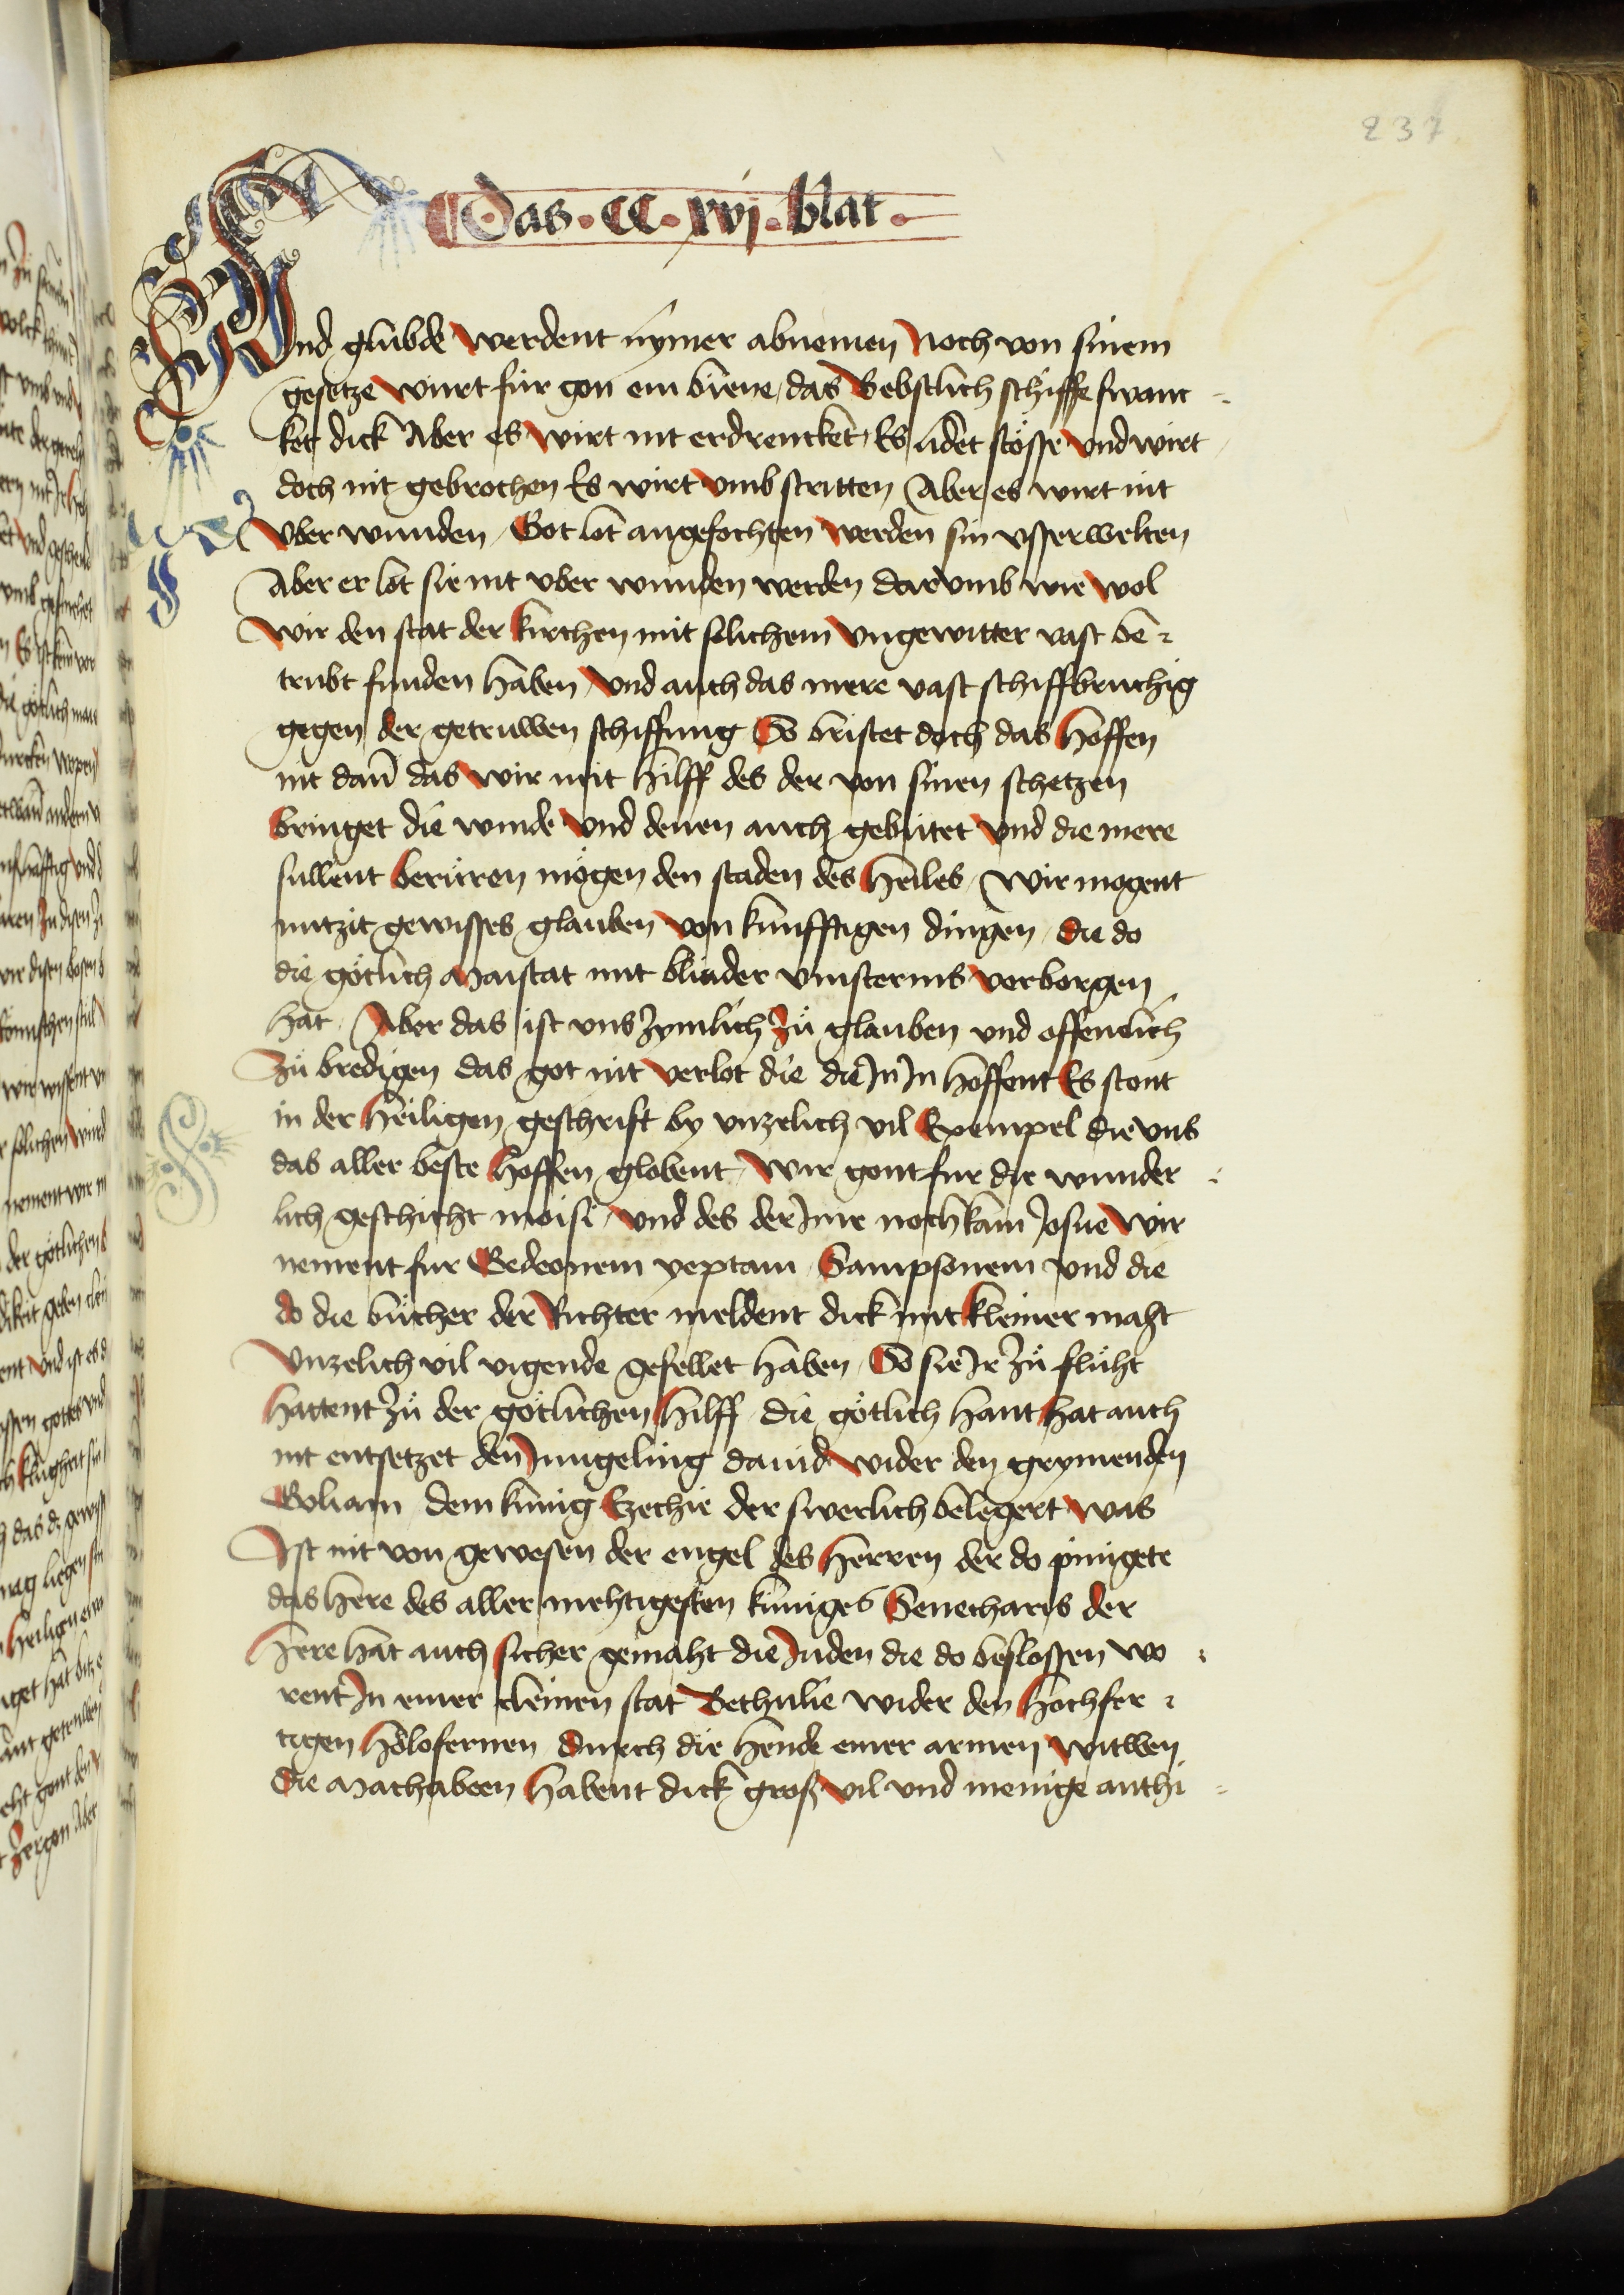 237
Das · CC · xvj · blat ·
Und glübde werdent nýmer abnemen Noch von sinem
gesetze würt für gon ein biene, das Bebstlich schiffe swanc -
ket dick Aber es wirt nit erdrencket, Es lidet stösse vnd wirt
doch nit gebrochen Es wirt vmb stritten Aber es wirt nit
vber wunden, Got lot angefochten werden sin vsserwelten
Aber er lot sie nit vber wunden werden dar vmb wie wol
wir den stat der kirchen mit solichem vngewitter vast be -
trubt funden haben, vnd auch das mere vast schiffbruchig
gegen der getruwen schiffung So bristet doch das hoffen
nit dañ das wir mit hilff des der von sinen schetzen
bringet die winde vnd denen auch gebütet vnd die mere
sullent berüren mögen den staden des heiles, Wir mogent
nutzit gewisses glauben von kunfftigen dingen, die do
die götlich Maistat mit blinder vinsternis verborgen
hat, Aber das ist vns zymlich Zů glauben vnd offenlich
Zů bredigen das got nit verlot die die Jn Jn hoffent Es stont
in der heiligen geschrift by vnzelich vil Exempel die vns
das aller beste hoffen globent, Wir gont fur die wunder -
lich geschicht moisi, vnd des der Jme noch kam Josue Wir
nement fur Gedeonem yeptam, Sampsonem vnd die
do die bücher der Richter meldent dick mit kleiner maht
vnzelich vil vigende gefellet haben, So sie Jr Zů flüht
hattent Zů der götlichen hilff, die götlich hant hat auch
nit entsetzet den Jungeling dauid wider den grymenden
Goliam dem kunig Ezechie der swerlich belegert was
Jst nit von gewesen der engel des herren der do pinigete
das here des aller mehtigesten küniges Senecharis der
here hat auch sicher gemaht die Juden die do beslossen wo -
rent Jn einer cleinen stat Bethulie wider den hochfer -
tigen holofernen durch die hende einer armen witwen
die Machabeen habent dick groß vil vnd menige anthi -